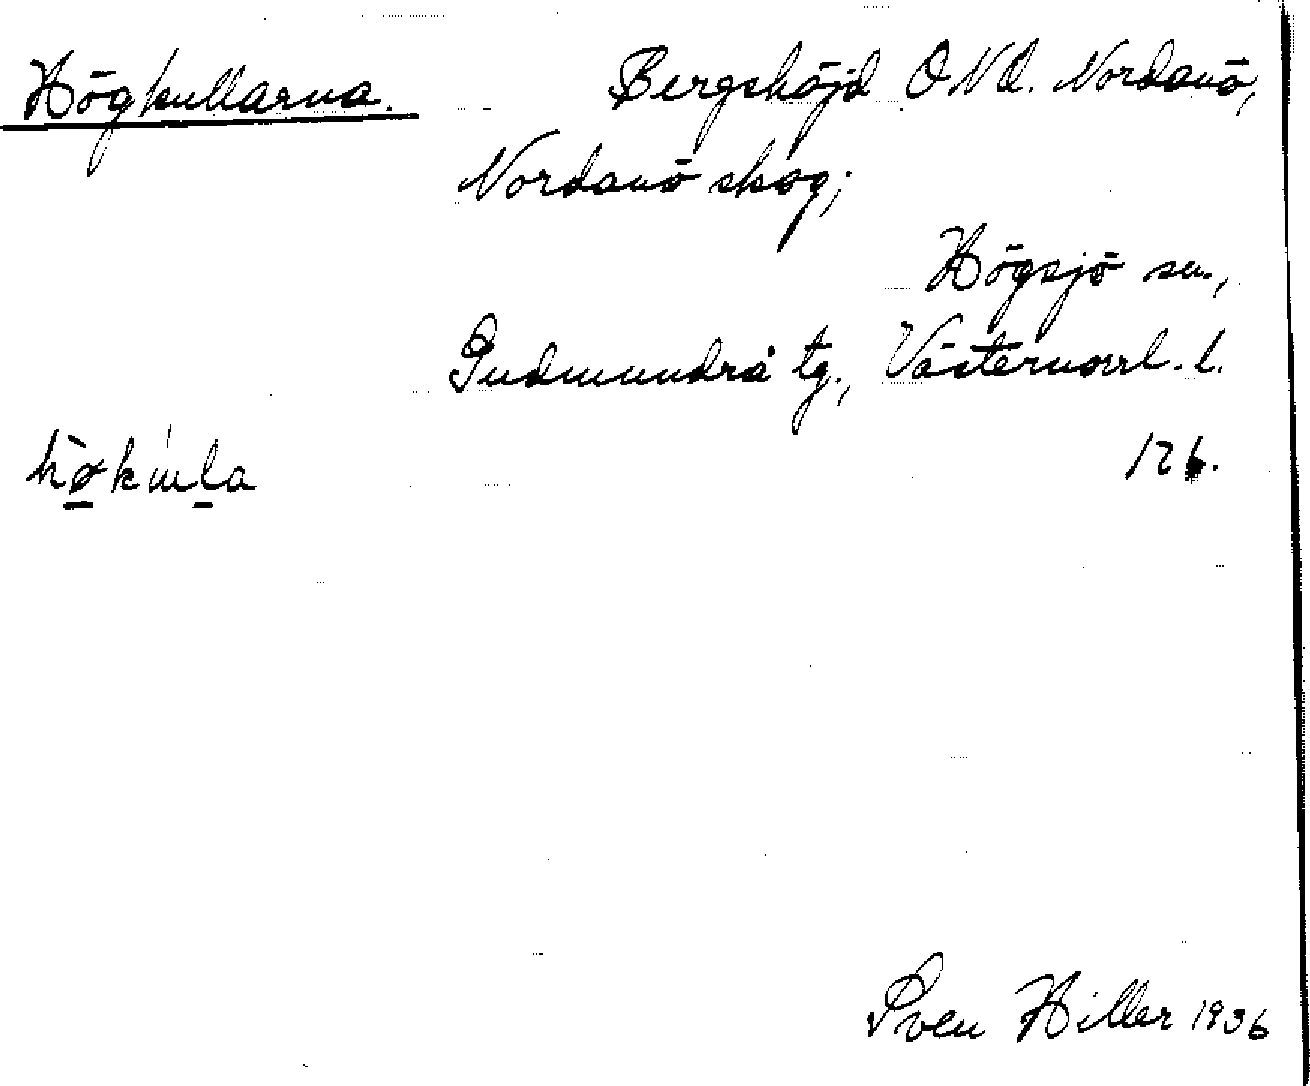 Högkullarna. Bergshöjd ONO. Nordanö,
Nordanö skog;
Högsjö sn.,
Gudmundrå tg., Västernorrl. l.
126.
Sven Hiller 1936